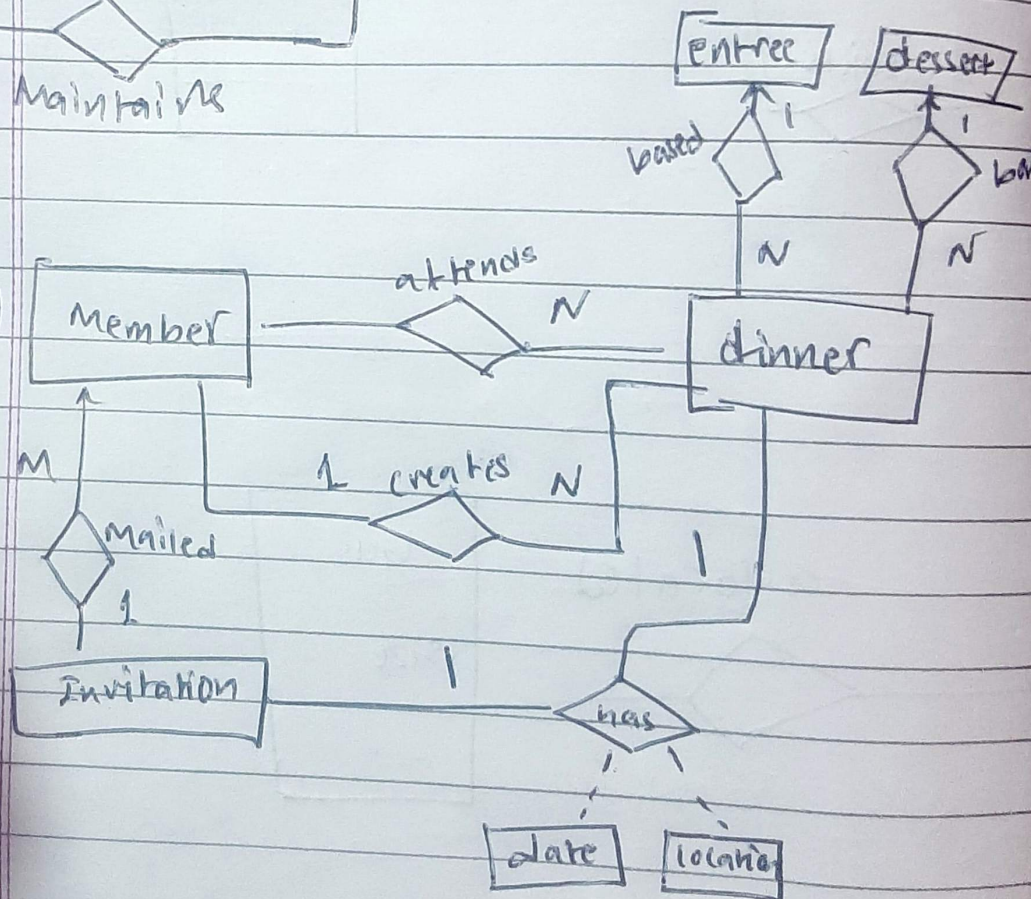 Maintains
entree
dessert
1
1
based
ba
N
N
attends
N
Member
dinner
M
1
creates
N
Mailed
1
1
Invitation
1
has
date
locatio